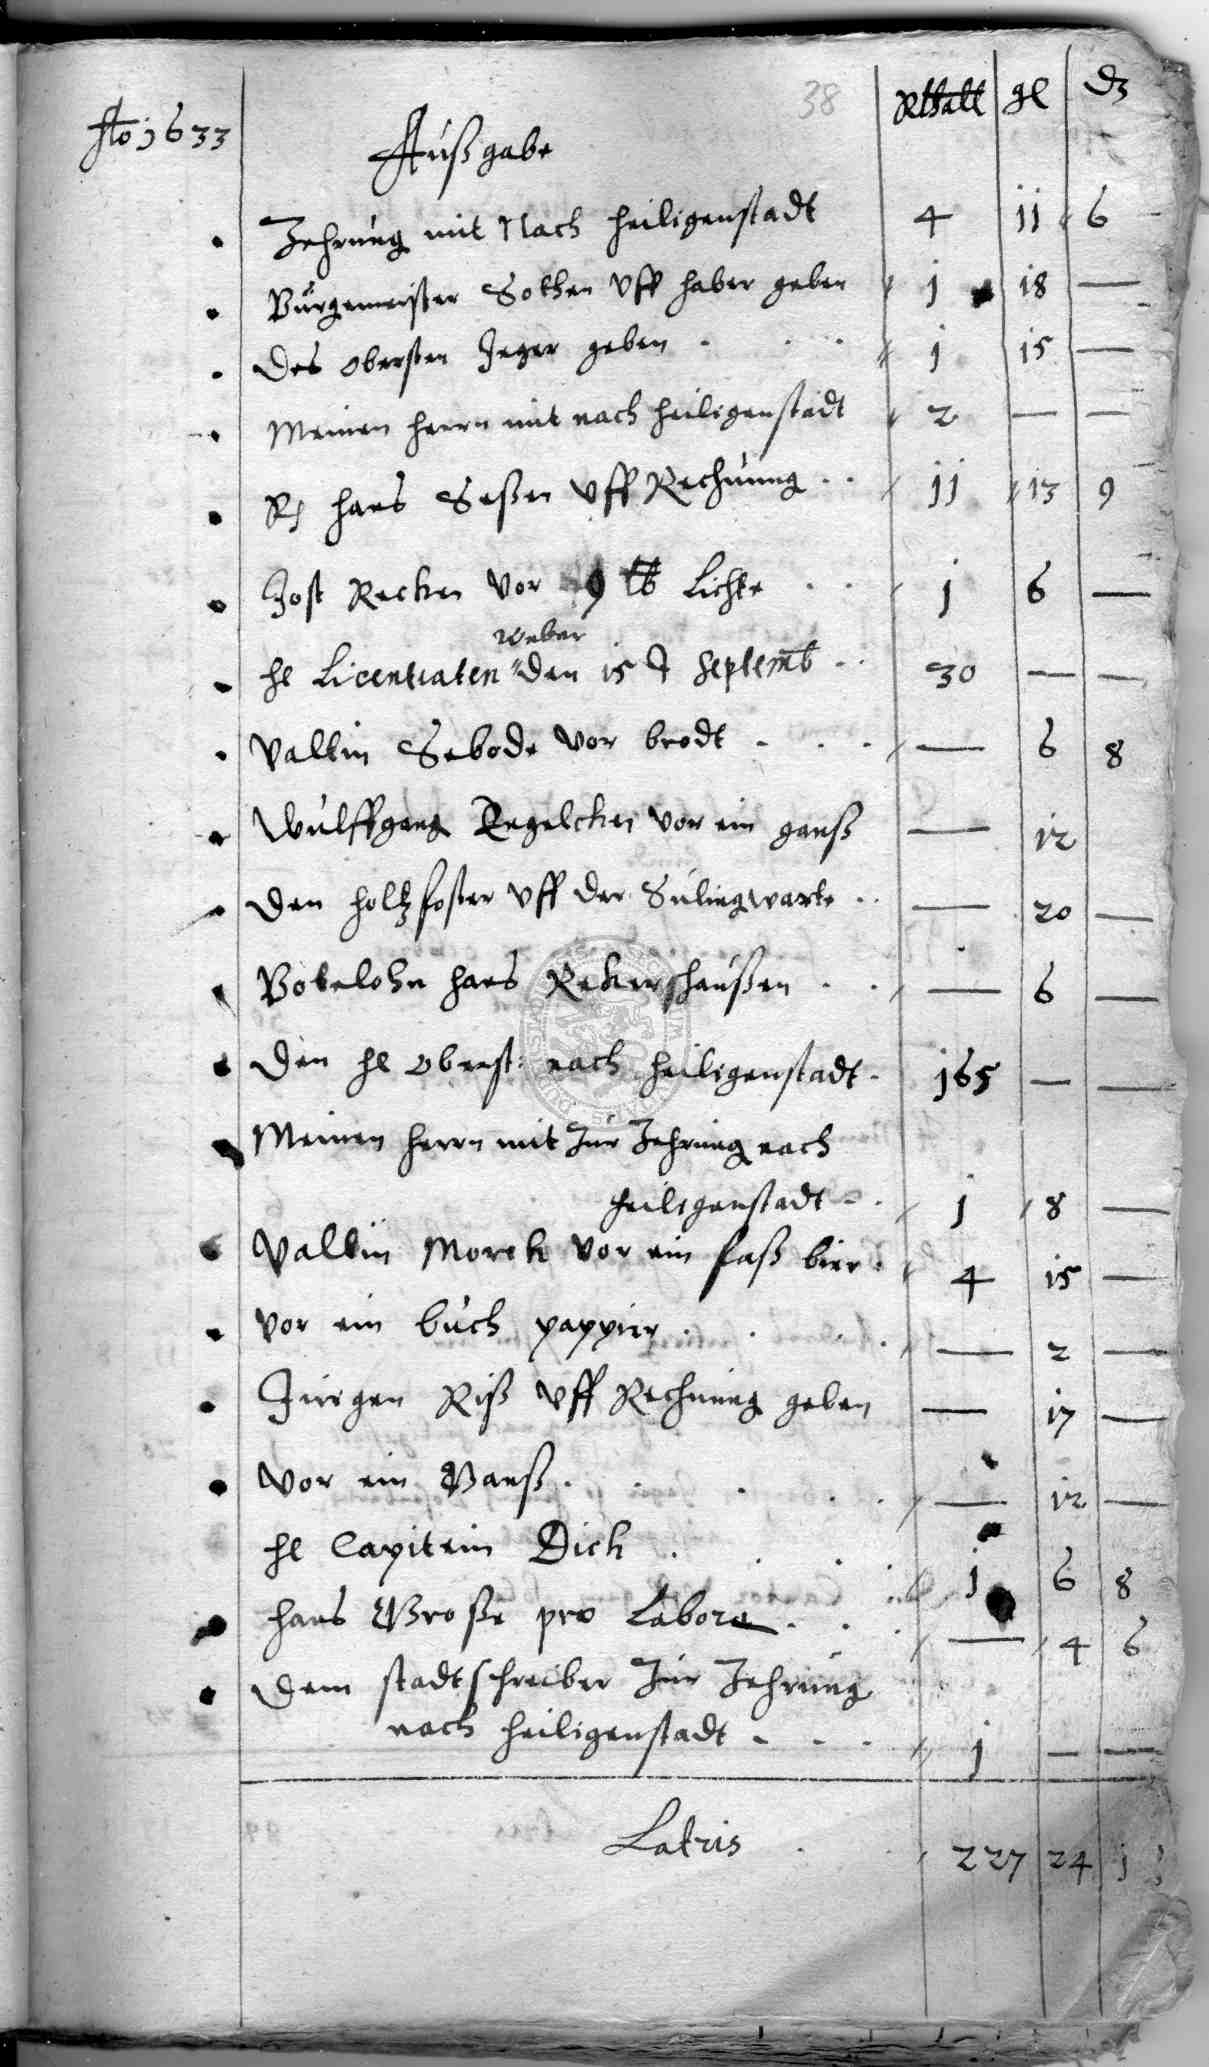 38 Rthall gl d
Ao 1633
Außgabe
Zehrung mit Nach heiligenstadt 4 11 6
Burgemeister Sothen uff haber geben 1 18 —
des obersten Jeger geben . . . 1 15 —
Meinen herrn mit nach heiligenstadt 2 — —
hans Seßen uff Rechnung . . 11 13 9
Jost Recken vor 9 lb Lichte . . 1 6 —
weber
hl Licentiaten den 15 t Septemb . . 30 — —
Valtin Sebode vor brodt . . . — 6 8
Wulffgang Regelcken vor ein ganß — 12
den holtzfoster uff der Sulingwarte . . — 20 —
Botelohn hans Rekershaußen . . — 6 —
den hl oberst: nach heiligenstadt . 165 — —
Meinen herrn mit Zur Zehrung nach
heiligenstadt . . 1 8 —
Valtin Morek vor ein faß bier . 4 15 —
vor ein buch pappier . . . . — 2 —
Jurgen Riß uff Rechnung geben — 17 —
vor ein Ganß . . . . — 12 —
hl Capitein Dick . . . . 1 6 8
hans Große pro Labore . . . — 4 6
dem stadtschreiber Zur Zehrung
nach heiligenstadt . . . 1 — —
Latris . . 227 24 1